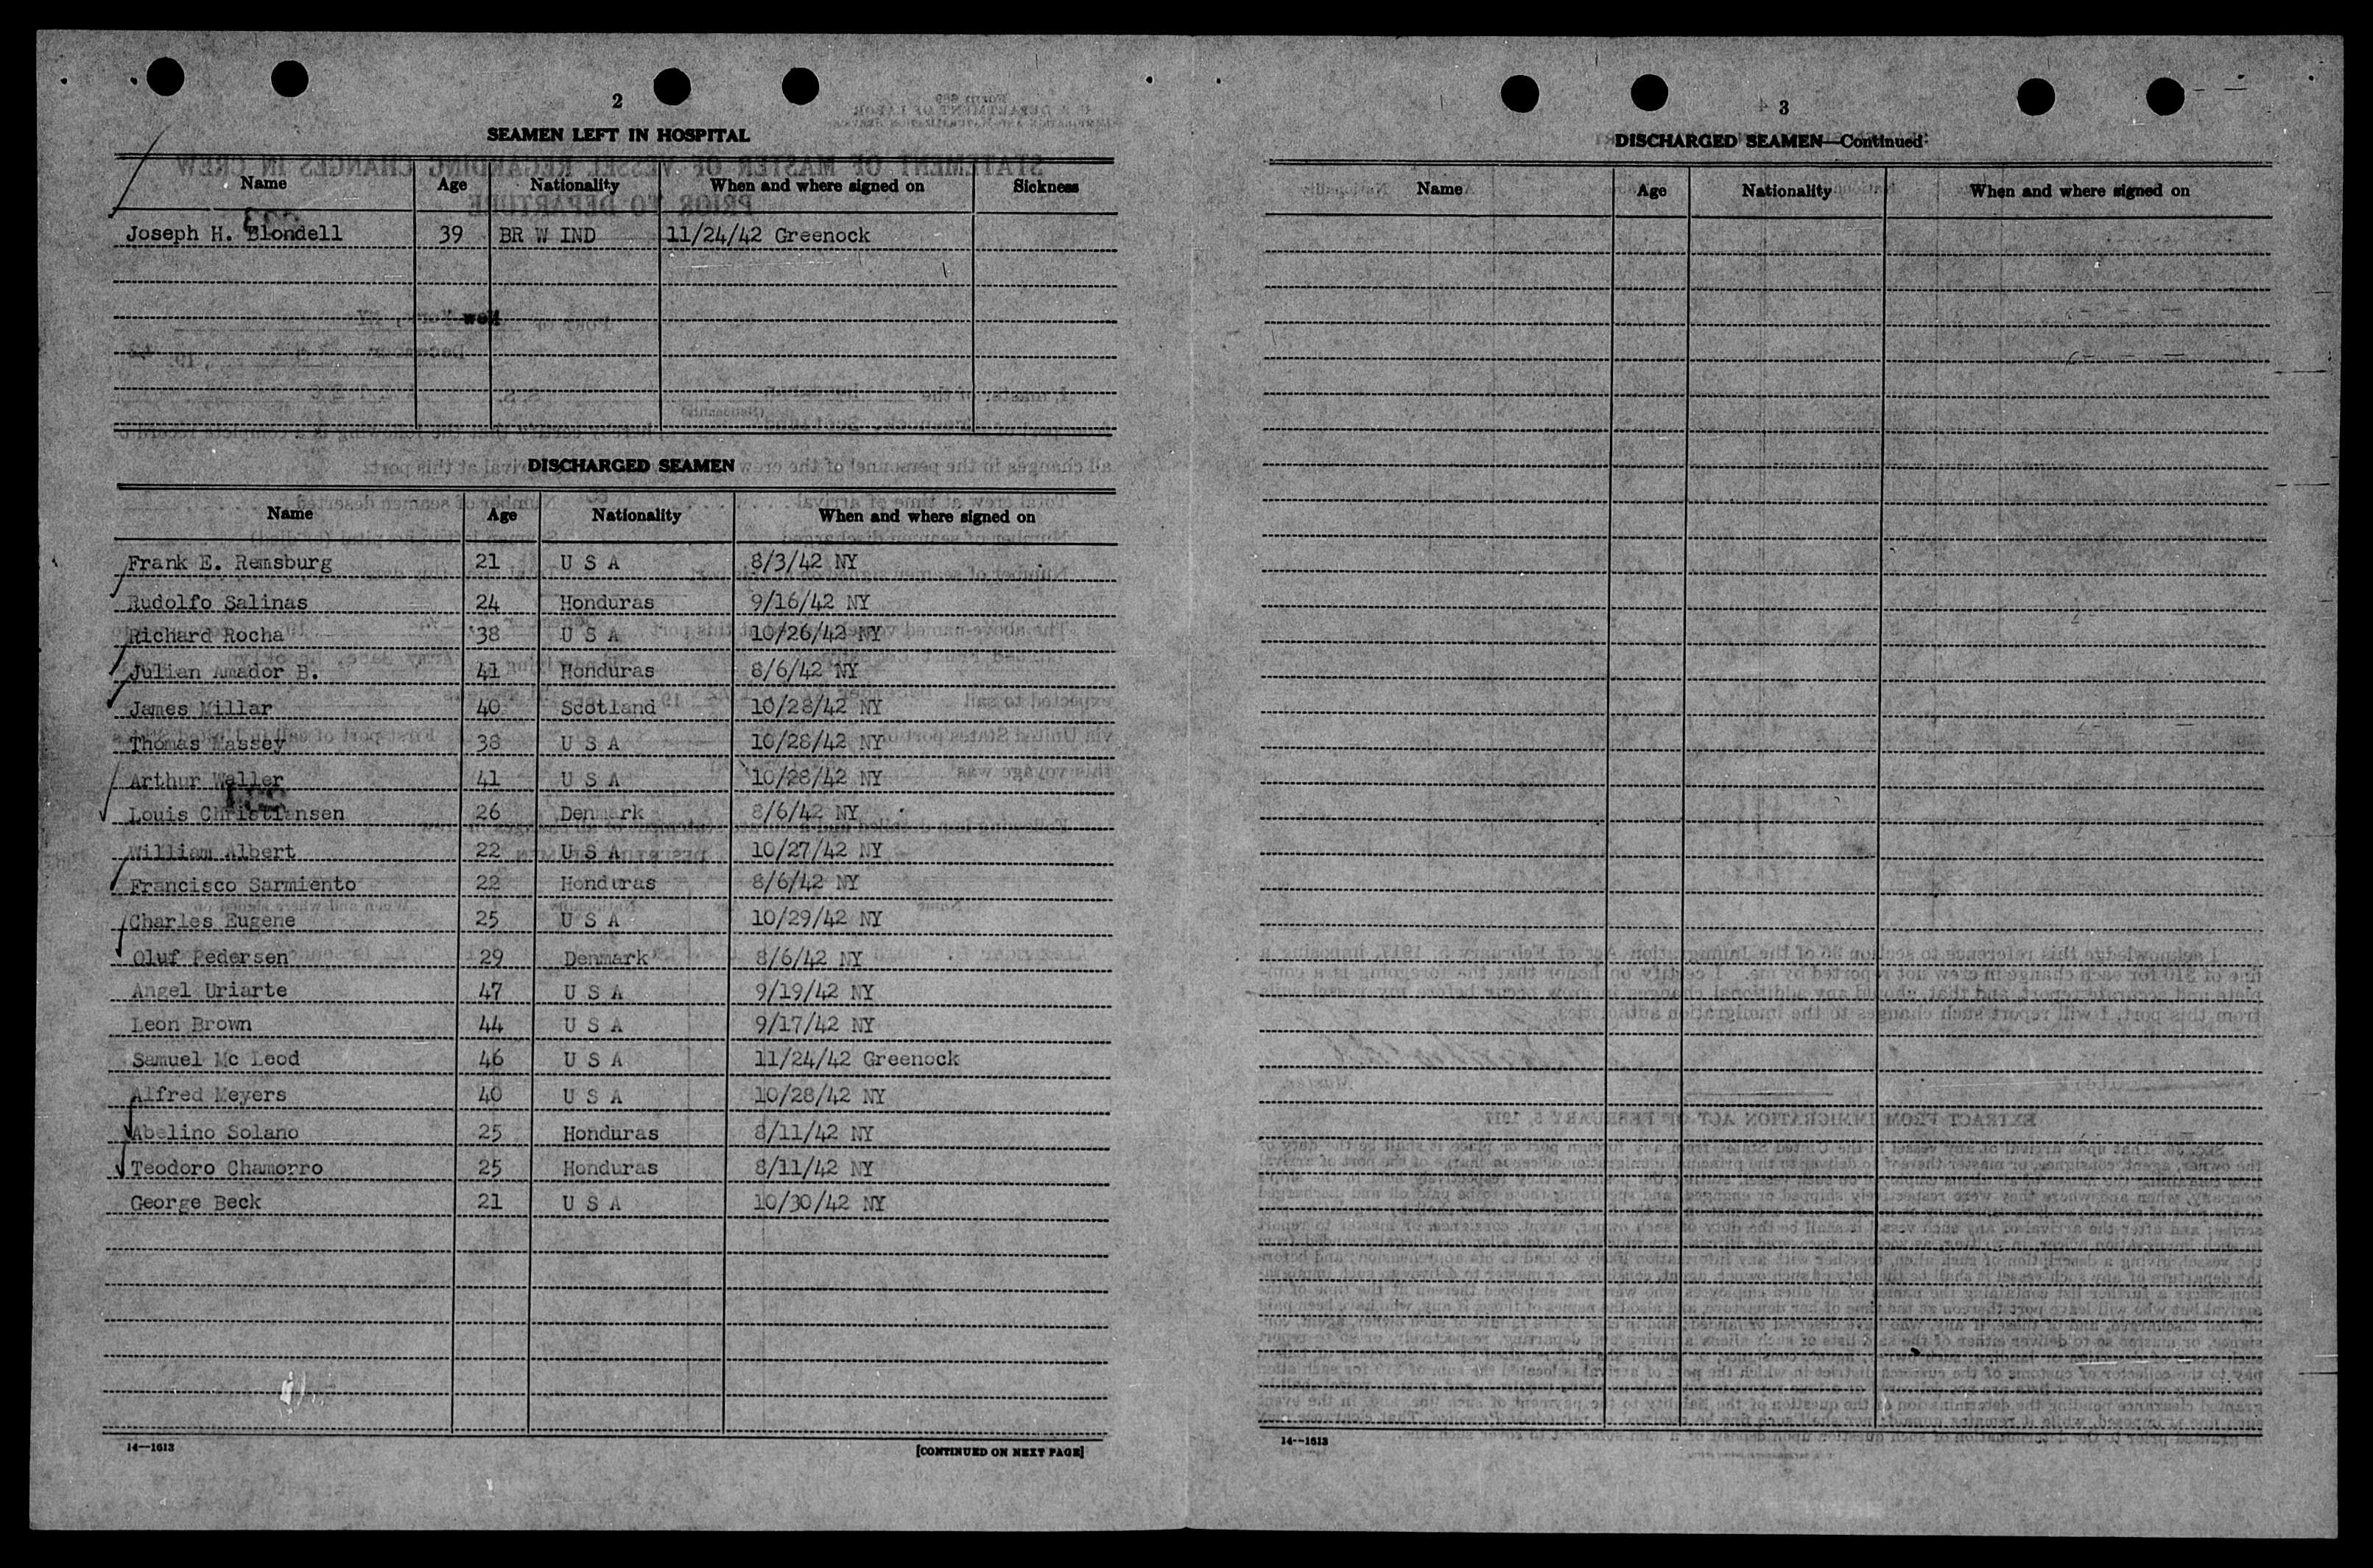 2
SEAMEN LEFT IN HOSPITAL
Name Age Nationality When and where signed on Sickness
Joseph H. Blondell 39 BR W IND 11/24/42 Greenock
DISCHARGED SEAMEN
Name Age Nationality When and where signed on
Frank E. Remsburg 21 U S A 8/3/42 NY
Rudolfo Salinas 24 Honduras 9/16/42 NY
Richard Rocha 38 U S A 10/26/42 NY
Julian Amador B. 41 Honduras 8/6/42 NY
James Millar 40 Scotland 10/28/42 NY
Thomas Massey 38 U S A 10/28/42 NY
Arthur Waller 41 U S A 10/28/42 NY
Louis Christiansen 26 Denmark 8/6/42 NY
William Albert 22 U S A 10/27/42 NY
Francisco Sarmiento 22 Honduras 8/6/42 NY
Charles Eugene 25 U S A 10/29/42 NY
Oluf Pedersen 29 Denmark 8/6/42 NY
Angel Uriarte 47 U S A 9/19/42 NY
Leon Brown 44 U S A 9/17/42 NY
Samuel Mc Leod 46 U S A 11/24/42 Greenock
Alfred Meyers 40 U S A 10/28/42 NY
Abelino Solano 25 Honduras 8/11/42 NY
Teodoro Chamorro 25 Honduras 8/11/42 NY
George Beck 21 U S A 10/30/42 NY
14—1613 [CONTINUED ON NEXT PAGE]
3
DISCHARGED SEAMEN—Continued
Name Age Nationality When and where signed on
14—1613